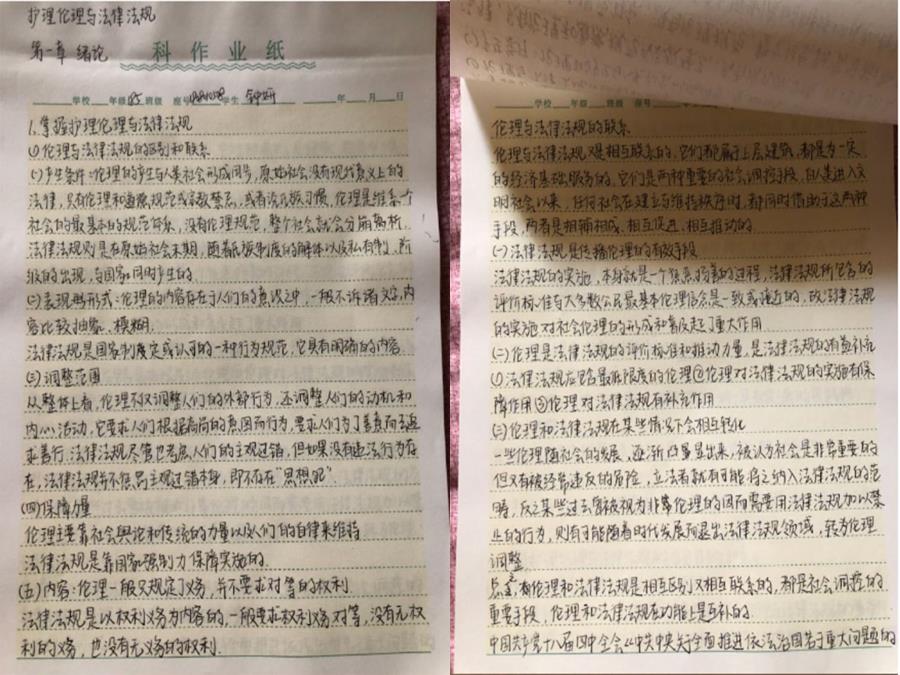 护理伦理与法律法规
第一章 绪论 科作业纸
学校 年级 班级 座号 学生 年 月 日
1.掌握护理伦理与法律法规
(1)伦理与法律法规的区别和联系
(一)产生条件:伦理的产生与人类社会形成同步,原始社会没有现代意义上的
法律,只有伦理和道德规范或宗教禁忌,或者说氏族习惯,伦理是维系一个
社会的最基本的规范体系,没有伦理规范,整个社会就会分崩离析,
法律法规则是在原始社会末期,随着氏族制度的解体以及私有制、阶
级的出现,与国家同时产生的
(二)表现形式:伦理的内容存在于人们的意识之中,一般不诉诸文字,内
容比较抽象、模糊.
法律法规是国家制定或认可的一种行为规范,它具有明确的内容
(三)调整范围
从整体上看,伦理不仅调整人们的外部行为,还调整人们的动机和
内心活动,它要求人们根据高尚的意图而行为,要求人们为了善而去追
求善行.法律法规尽管也考虑人们的主观过错,但如果没有违法行为存
在,法律法规并不惩罚主观过错本身,即不存在“思想犯”
(四)保障力量
伦理主要靠社会舆论和传统的力量以及人们的自律来维持
法律法规是靠国家强制力保障实施的.
(五)内容:伦理一般只规定义务,并不要求对等的权利
法律法规是以权利义务为内容的,一般要求权利义务对等,没有无权
利的义务,也没有无义务的权利.
学校 年级 班级 座号
伦理与法律法规的联系
伦理与法律法规观是相互联系的.它们都属于上层建筑,都是为一定
的经济基础服务的.它们是两种重要的社会调控手段,自人类进入文
明社会以来,任何社会在建立与维持秩序时,都同时借助于这两种
手段,两者是相辅相成、相互促进、相互推动的
(一)法律法规是传播伦理的有效手段
法律法规的实施,本身就是一个惩恶扬善的过程,法律法规所包含的
评价标准与大多数公民最基本伦理信念是一致或接近的,故法律法规
的实施对社会伦理的形成和普及起了重大作用
(二)伦理是法律法规的评价标准和推动力量,是法律法规的有益补充
①法律法规应包含最低限度的伦理②伦理对法律法规的实施有保
障作用③伦理对法律法规有补充作用
(三)伦理和法律法规在某些情况下会相互转化
一些伦理随社会的发展,逐渐凸显出来,被认为社会是非常重要的
但又有被经常违反的危险,立法者就有可能将之纳入法律法规的范
畴,反之某些过去曾被视为非常伦理的因而需要用法律法规加以禁
止的行为,则有可能随着时代发展而退出法律法规领域,转为伦理
调整
总之,伦理和法律法规是相互区别又相互联系的,都是社会调控的
重要手段,伦理和法律法规在功能上是互补的
中国共产党十八届四中全会《中共中央关于全面推进依法治国若干重大问题的